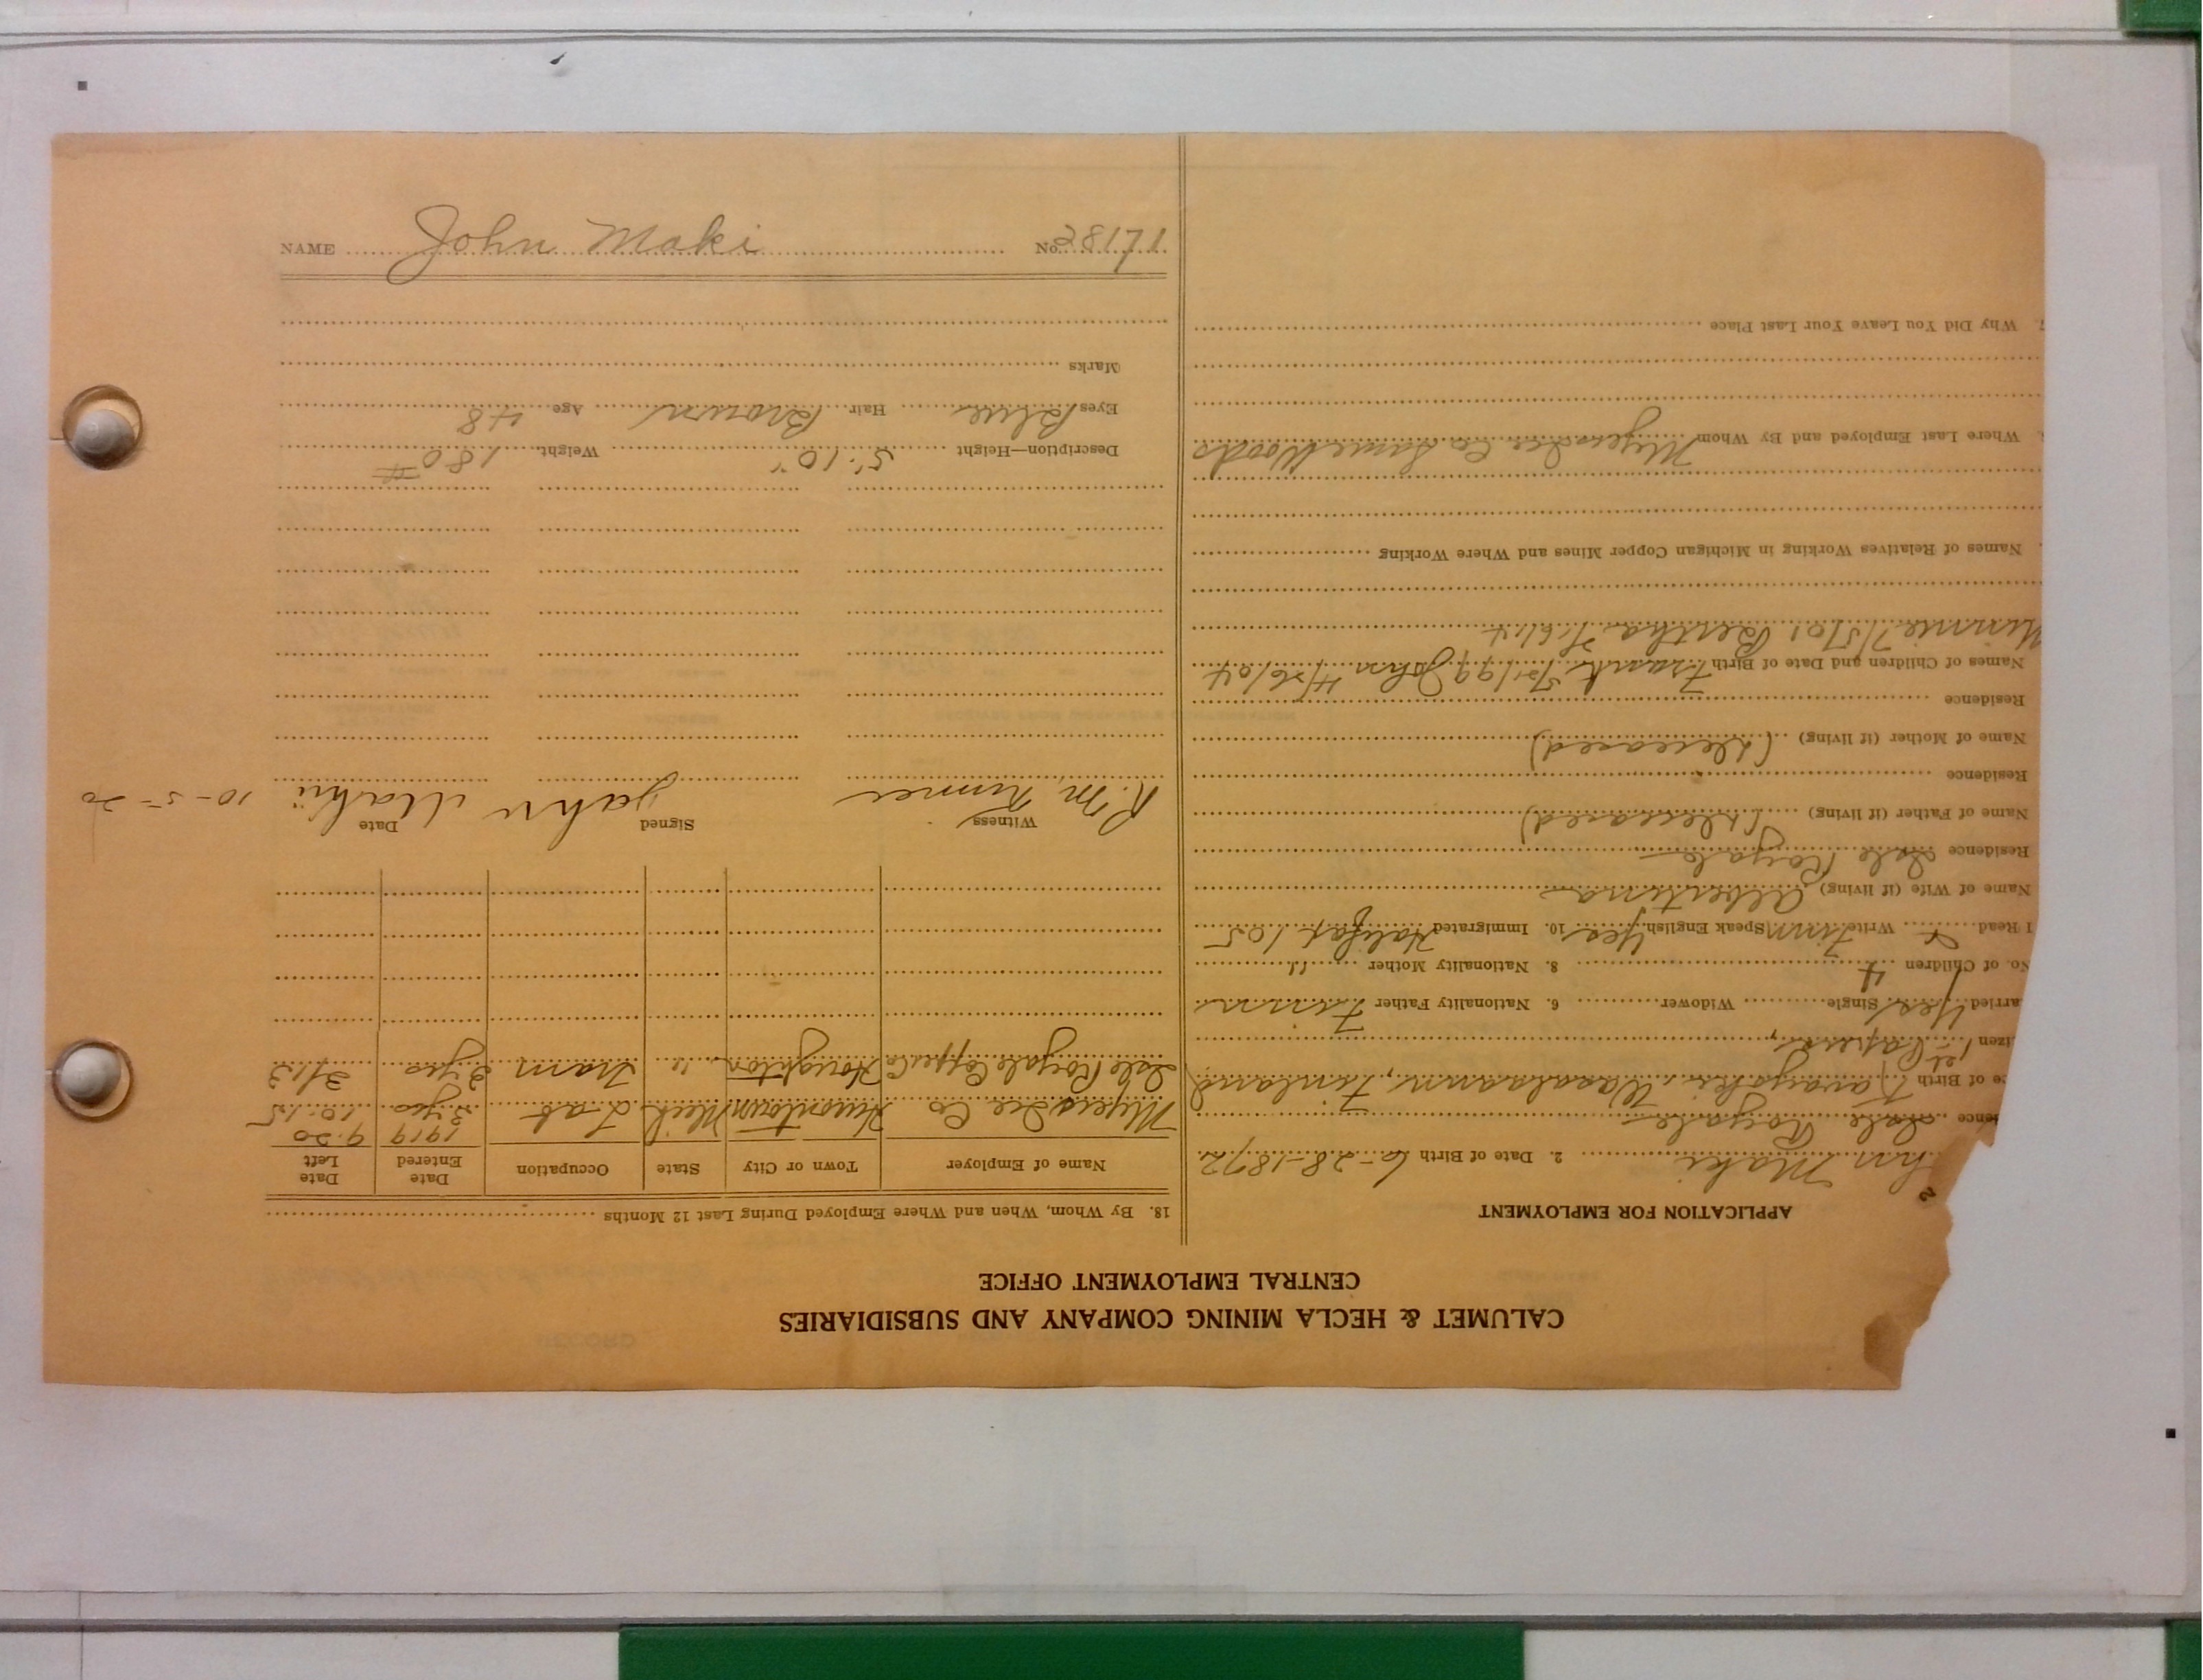 CALUMET & HECLA MINING COMPANY AND SUBSIDIARIES
CENTRAL EMPLOYMENT OFFICE
APPLICATION FOR EMPLOYMENT
hn Maki 2. Date of Birth 6-28-1872
dence Isle Royale
ce of Birth Finland
izen 1st Papers
arried Yes Single Widower 6. Nationality Father Finn
No. of Children 4 8. Nationality Mother "
I Read Write Finn Speak English Yes 10. Immigrated Halifax 105
Name of Wife (if living) Albertina
Residence Isle Royale
Name of Father (if living) (Deceased)
Residence
Name of Mother (if living) (Deceased)
Residence
Names of Children and Date of Birth Frank 5/21/99 John 4/26/04
Minnie 7/5/01 Bertha 7/6/14
Names of Relatives Working in Michigan Copper Mines and Where Working
Where Last Employed and By Whom Myers Ice Co Same Woods
7. Why Did You Leave Your Last Place
18. By Whom, When and Where Employed During Last 12 Months
Name of Employer Town or City State Occupation Date Entered Date Left
1919 9-20
Myers Ice Co Hurontown Mich Lab 3 yrs 10-15
Isle Royale Copper Co Houghton " Tram 2 yrs 3/13
Witness Signed Date
R. M. John Maki 10-5-20
Description—Height 5' 10" Weight 180 #
Eyes Blue Hair Brown Age 48
Marks
NAME John Maki No. 28171